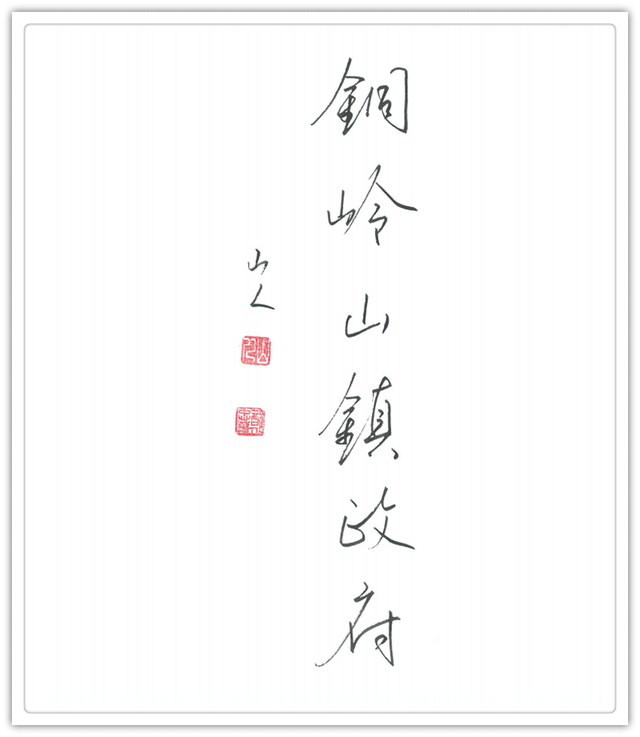 銅岭山鎮政府
山人